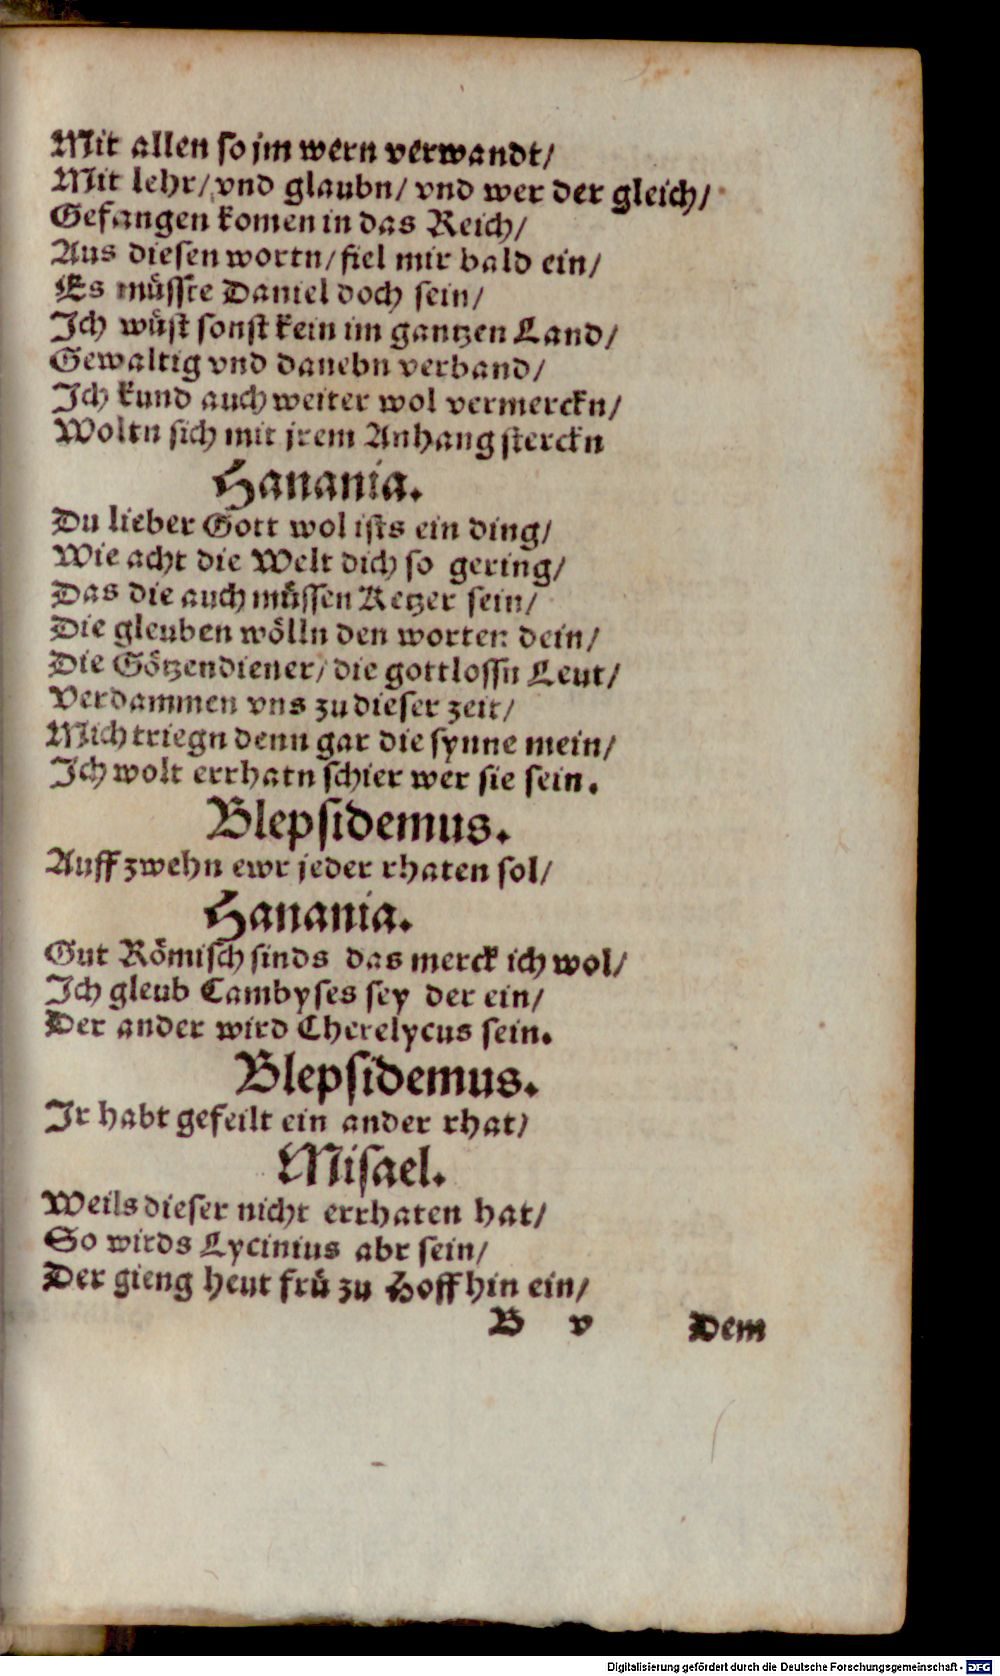 Mit allen so jm wern verwandt/
Mit lehr/ vnd glaubn/ vnd wer der gleich/
Gefangen komen in das Reich/
Aus diesen wortn/ fiel mir bald ein/
Es müsste Daniel doch sein/
Ich wüst sonst kein im gantzen Land/
Gewaltig vnd danebn verband/
Ich kund auch weiter wol vermerckn/
Woltn sich mit jrem Anhang sterckn
Hanania.
Du lieber Gott wol ists ein ding/
Wie acht die Welt dich so gering/
Das die auch müssen Ketzer sein/
Die gleuben wölln den worten dein/
Die Götzendiener/ die gottlossn Leut/
Verdammen vns zu dieser zeit/
Mich triegn denn gar die synne mein/
Ich wolt errhatn schier wer sie sein.
Blepsidemus.
Auff zwehn ewr jeder rhaten sol/
Hanania.
Gut Römisch sinds das merck ich wol/
Ich gleub Cambyses sey der ein/
Der ander wird Cherelycus sein.
Blepsidemus.
Jr habt gefeilt ein ander rhat/
Misael.
Weils dieser nicht errhaten hat/
So wirds Lycinius abr sein/
Der gieng heut frü zu Hoff hin ein/
B v Dem
Digitalisierung gefördert durch die Deutsche Forschungsgemeinschaft - DFG